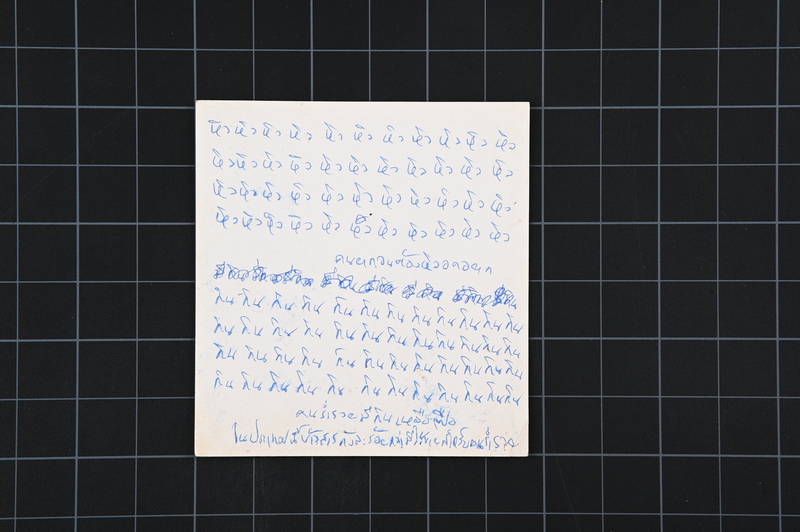 หิว หิว หิว หิว หิว หิว หิว หิว หิว หิว หิว
หิว หิว หิว หิว หิว หิว หิว หิว หิว หิว หิว
หิว หิว หิว หิว หิว หิว หิว หิว หิว หิว หิว
หิว หิว หิว หิว หิว หิว หิว หิว หิว หิว หิว
คนยากจนต้องหิวอดอยาก
กิน กิน กิน กิน กิน กิน กิน กิน กิน กิน กิน กิน
กิน กิน กิน กิน กิน กิน กิน กิน กิน กิน กิน กิน
กิน กิน กิน กิน กิน กิน กิน กิน กิน กิน กิน กิน
กิน กิน กิน กิน กิน กิน กิน กิน กิน กิน กิน กิน
คนร่ำรวยมีกินเหลือเฟือ
ในประเทศนี้ข้าวสารถังละร้อยกว่ามีไว้ขายสำหรับคนร่ำรวย